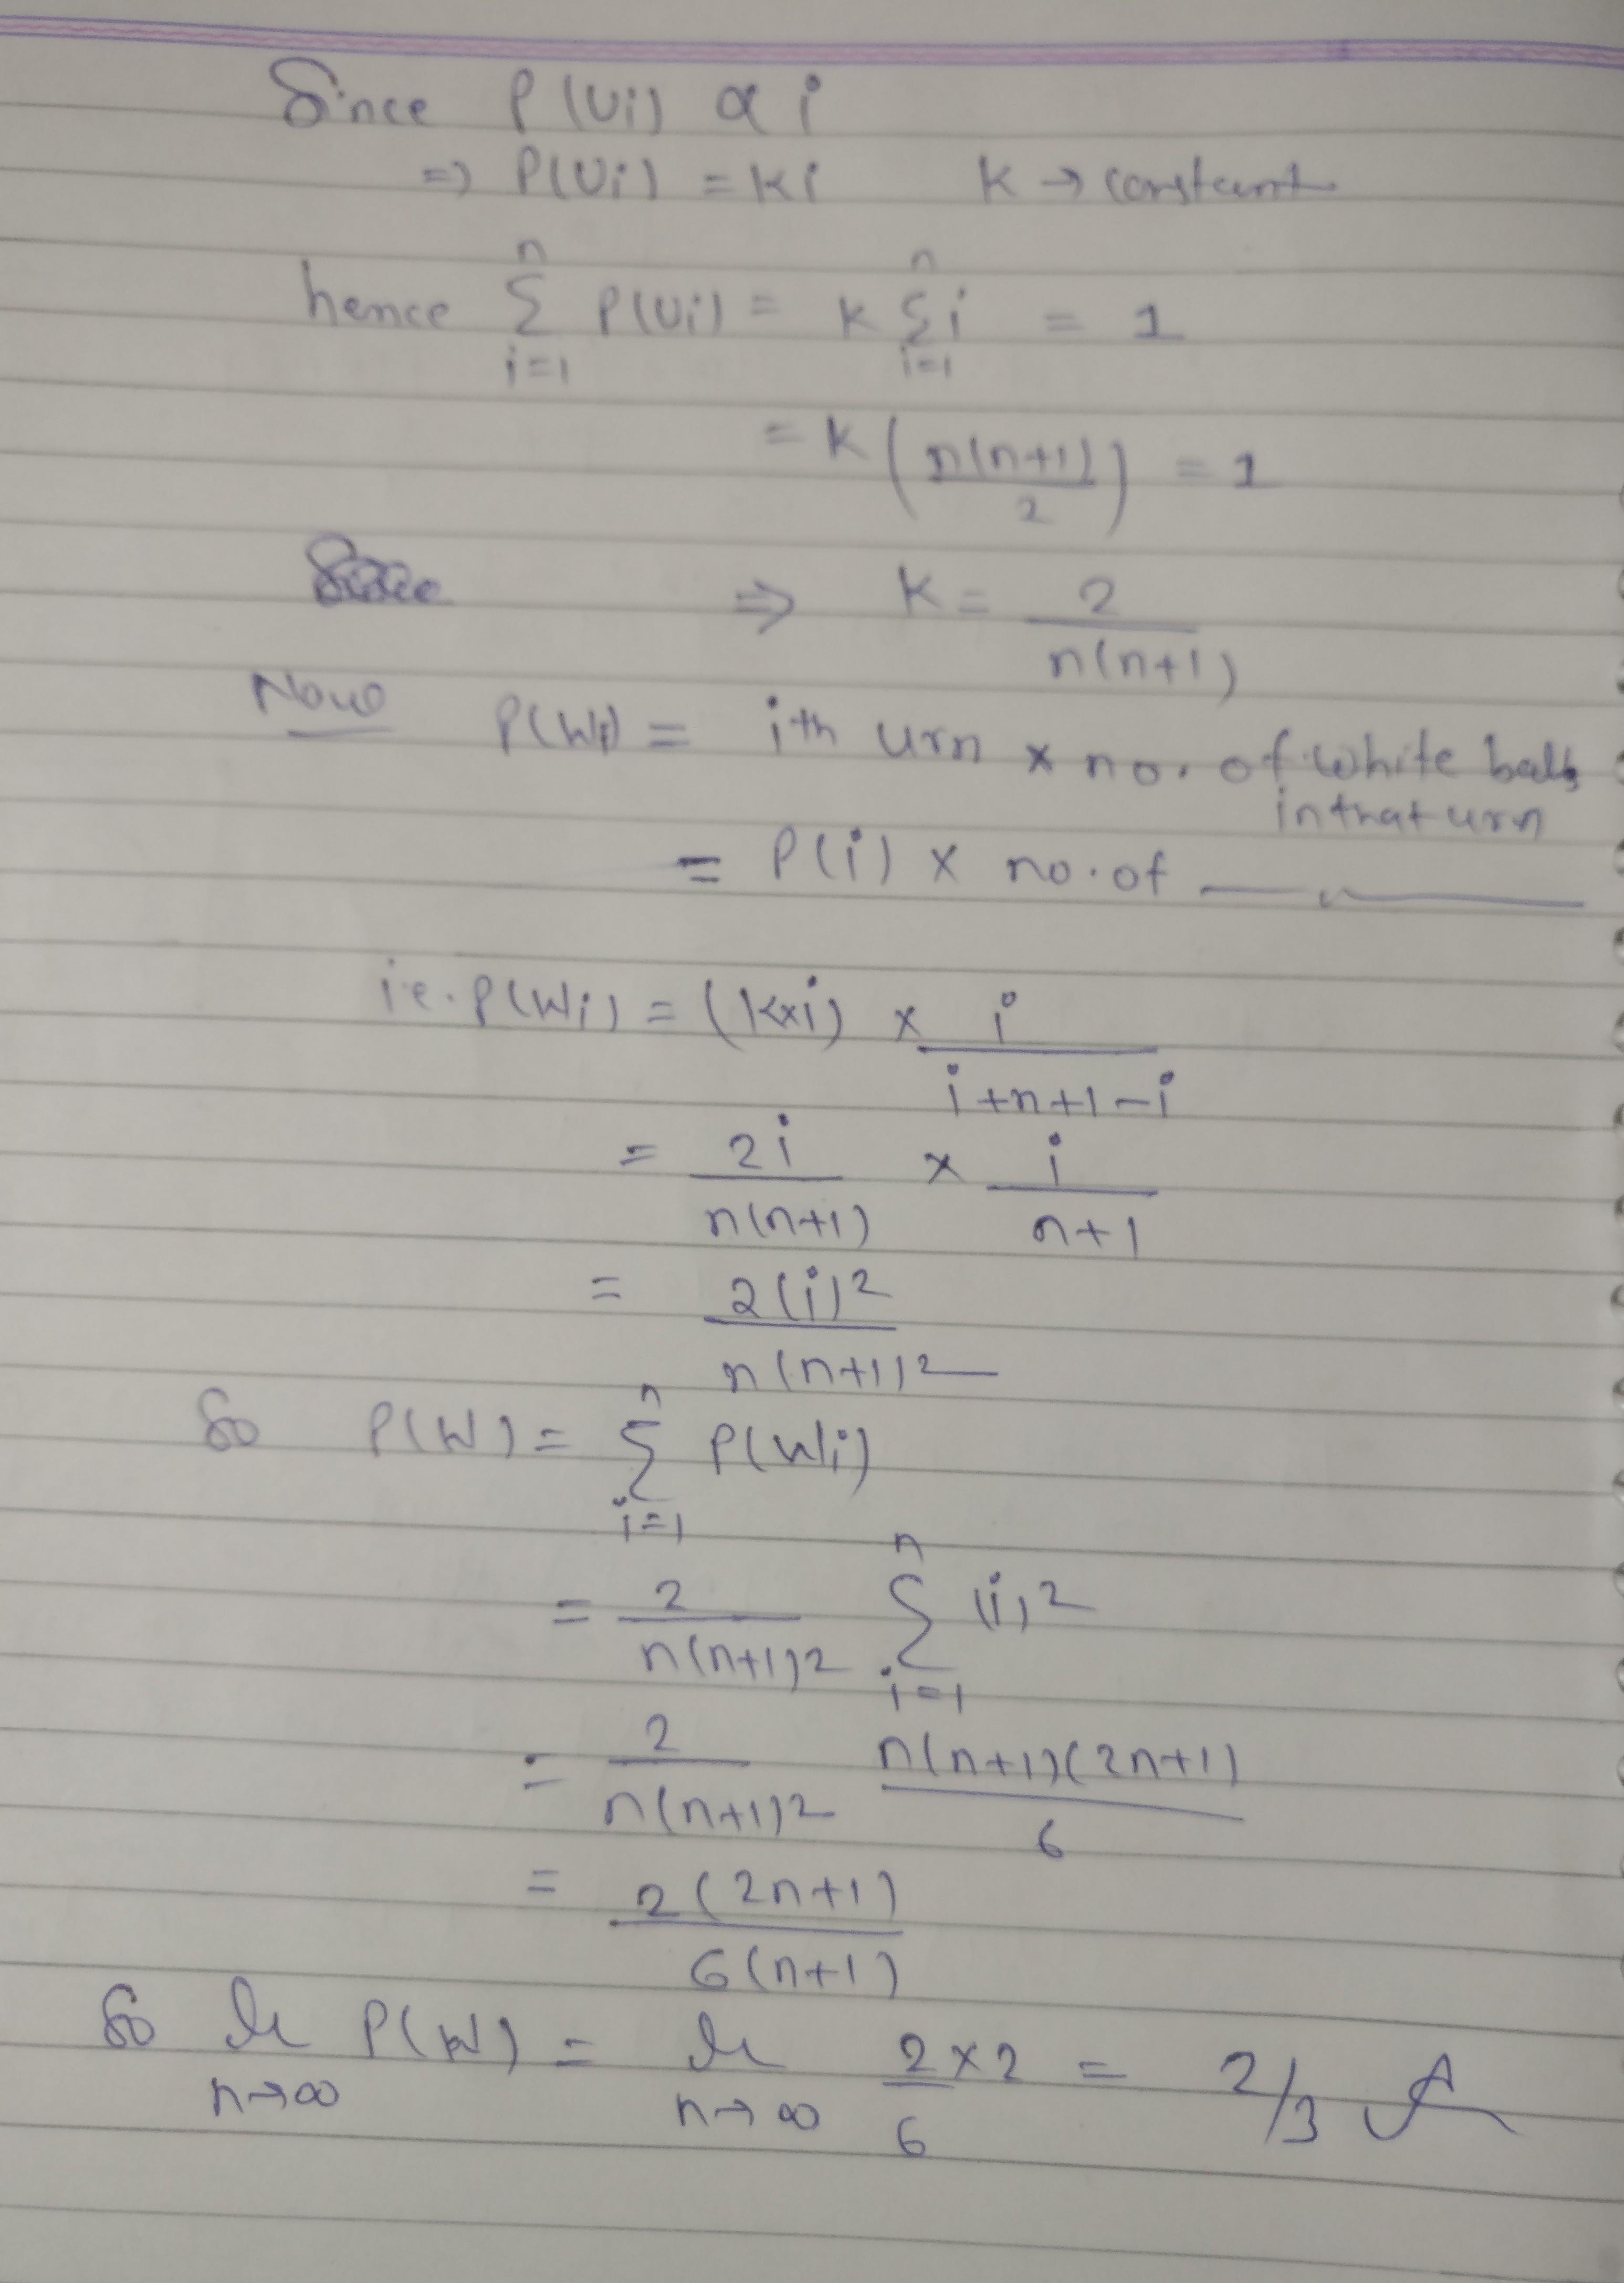 Since P(Ui) α i
=> P(Ui) = Ki K → constant
hence n∑i=1 P(Ui) = K n∑i=1 i = 1
= K (n(n+1)/2) = 1
⇒ K = 2/n(n+1)
Now P(Wi) = ith urn x no. of white balls
in that urn
= P(i) x no. of —〃—
i.e. P(Wi) = (K×i) x i/i+n+1-i
= 2i/n(n+1) x i/n+1
= 2(i)²/n(n+1)²
So P(W) = n∑i=1 P(Wi)
= 2/n(n+1)² n∑i=1 (i)²
= 2/n(n+1)² n(n+1)(2n+1)/6
= 2(2n+1)/6(n+1)
So lt n→∞ P(W) = lt n→∞ 2×2/6 = 2/3 A